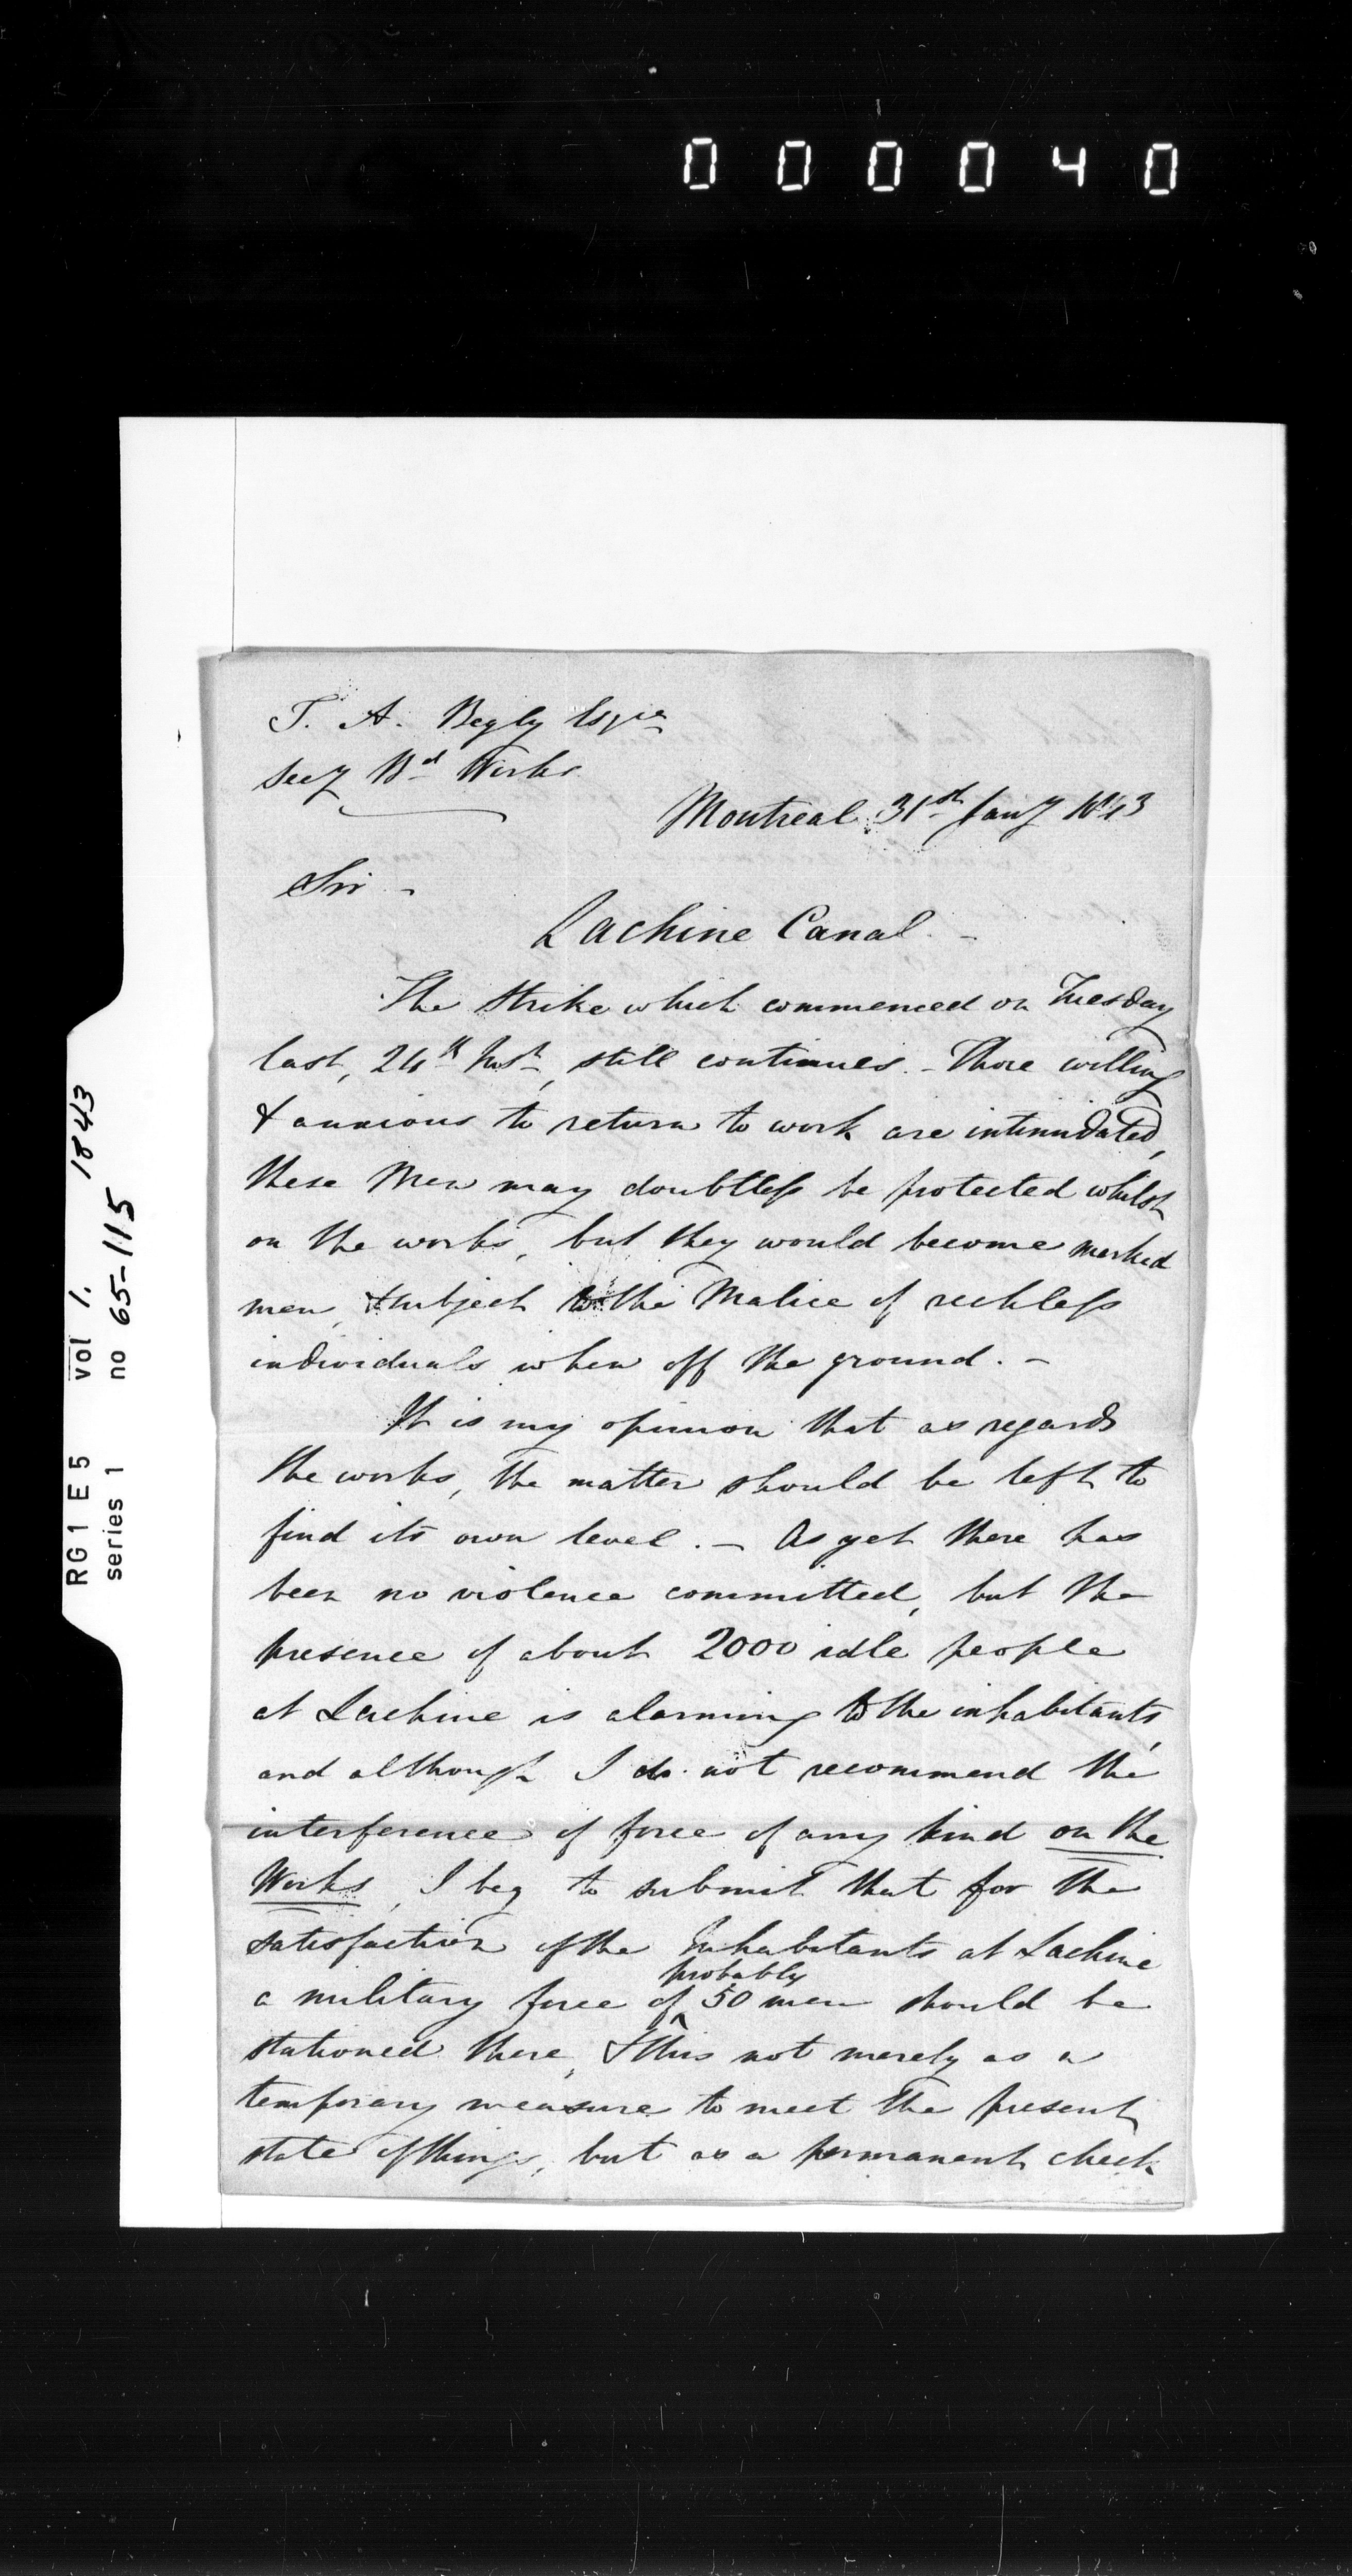 000040
RG1 E5 vol 1. 1843
series 1 no 65-115
T. A. Begly Esqre
Secy Bd Works
Montreal 31st Jany 1843
Sir -
Lachine Canal. -
The Strike which commenced on Tuesday
last, 24th Inst, still continues. - Those willing
& anxious to return to work are intimidated,
these Men may doubtless be protected whilst
on the works, but they would become marked
men, & subject to the Malice of reckless
individuals when off the ground. -
It is my opinion that as regards
the works, the matter should be left to
find its own level. - As yet there has
been no violence committed, but the
presence of about 2000 idle people
at Lachine is alarming to the inhabitants,
and although I do not recommend the
interference of force of any kind on the
Works, I beg to submit that for the
satisfaction of the Inhabitants at Lachine
a military force of probably 50 men should be
stationed there, & this not merely as a
temporary measure to meet the present
state of things, but as a permanent check